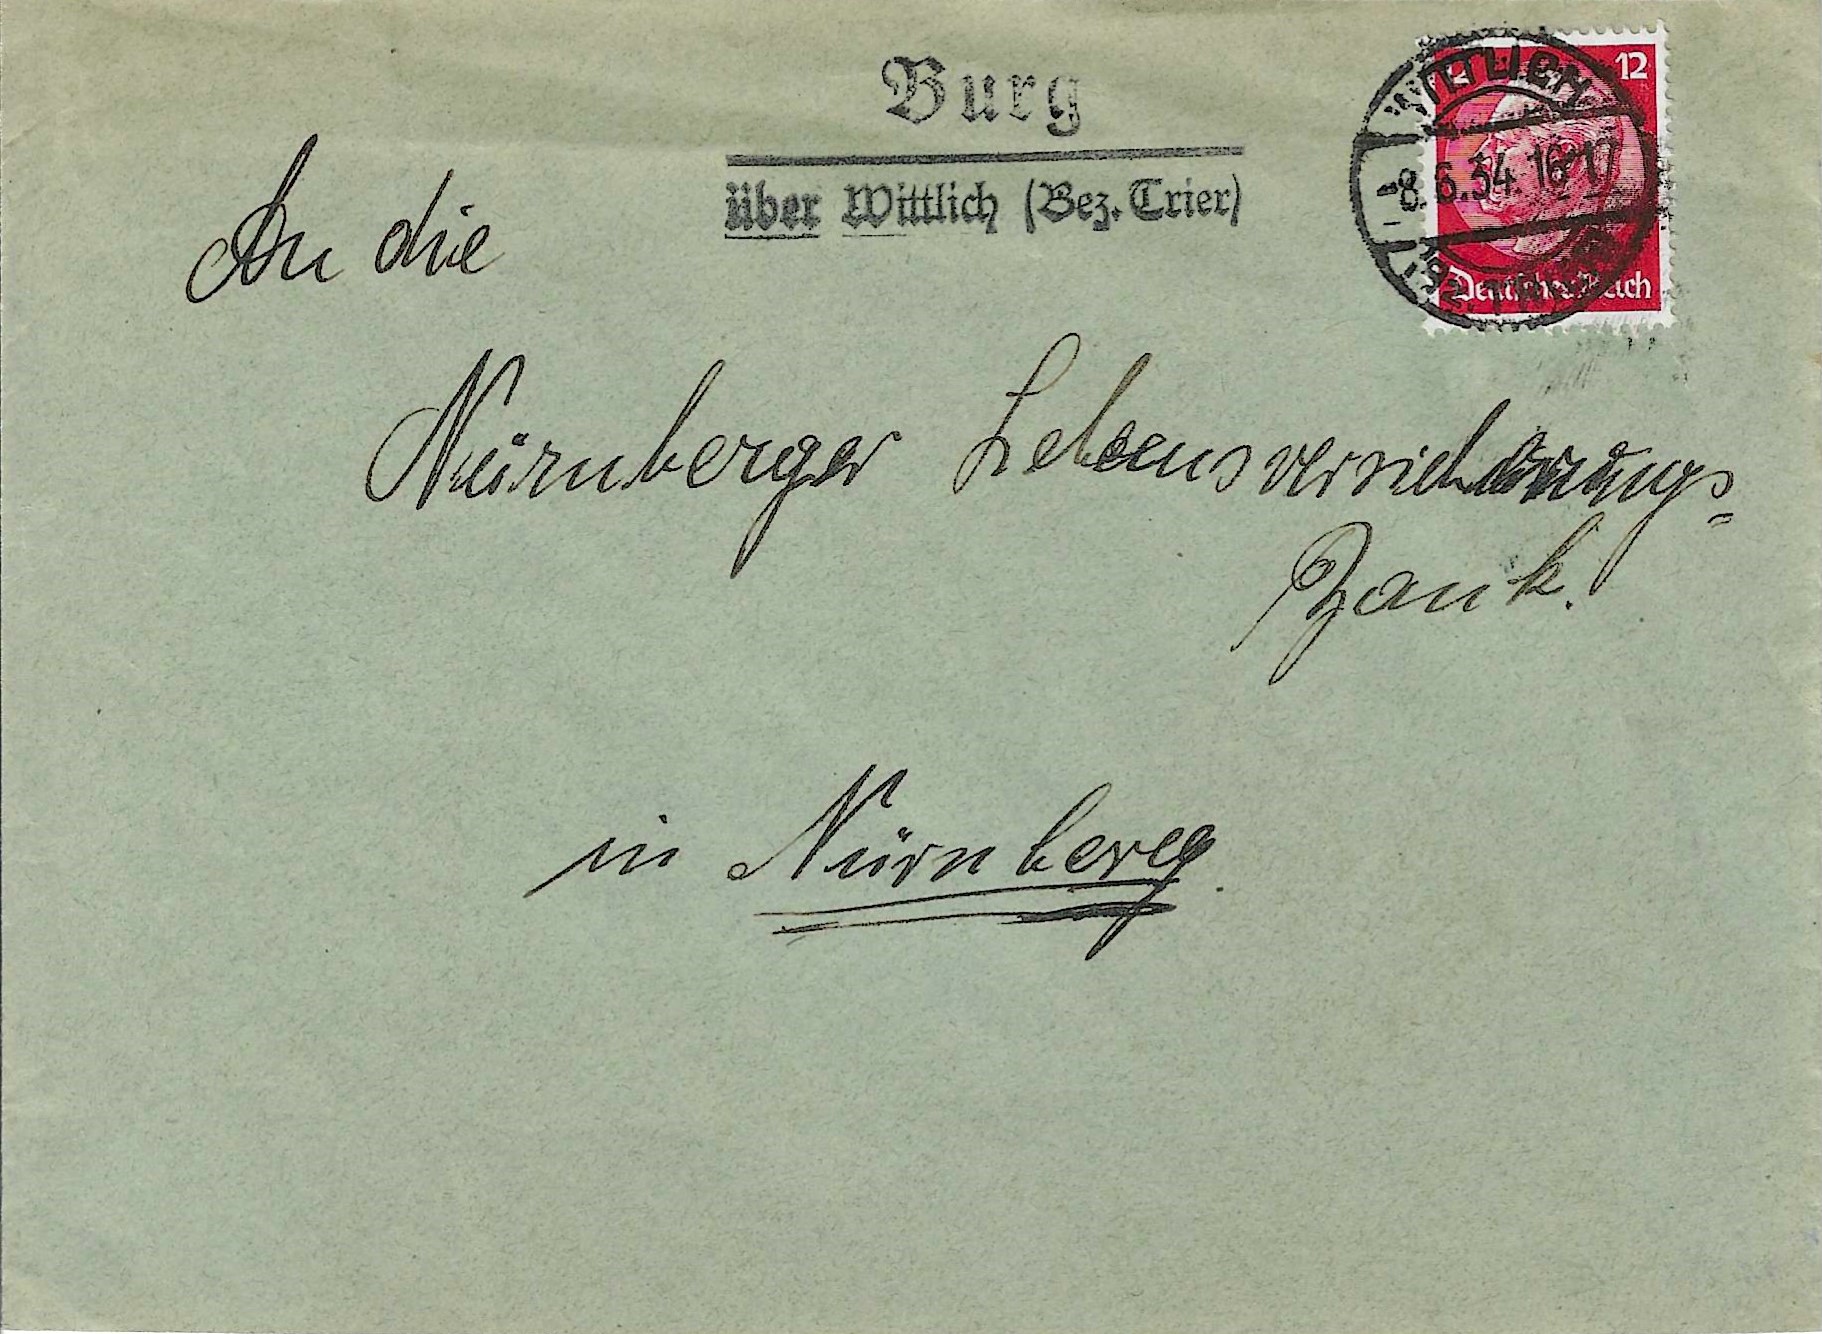 Burg
über Wittlich (Bez. Trier)
WITTLICH
12
-8.6.34 16-17
Deutsches Reich
An die
Nürnberger Lebensversicherungs=
Bank.
in Nürnberg.